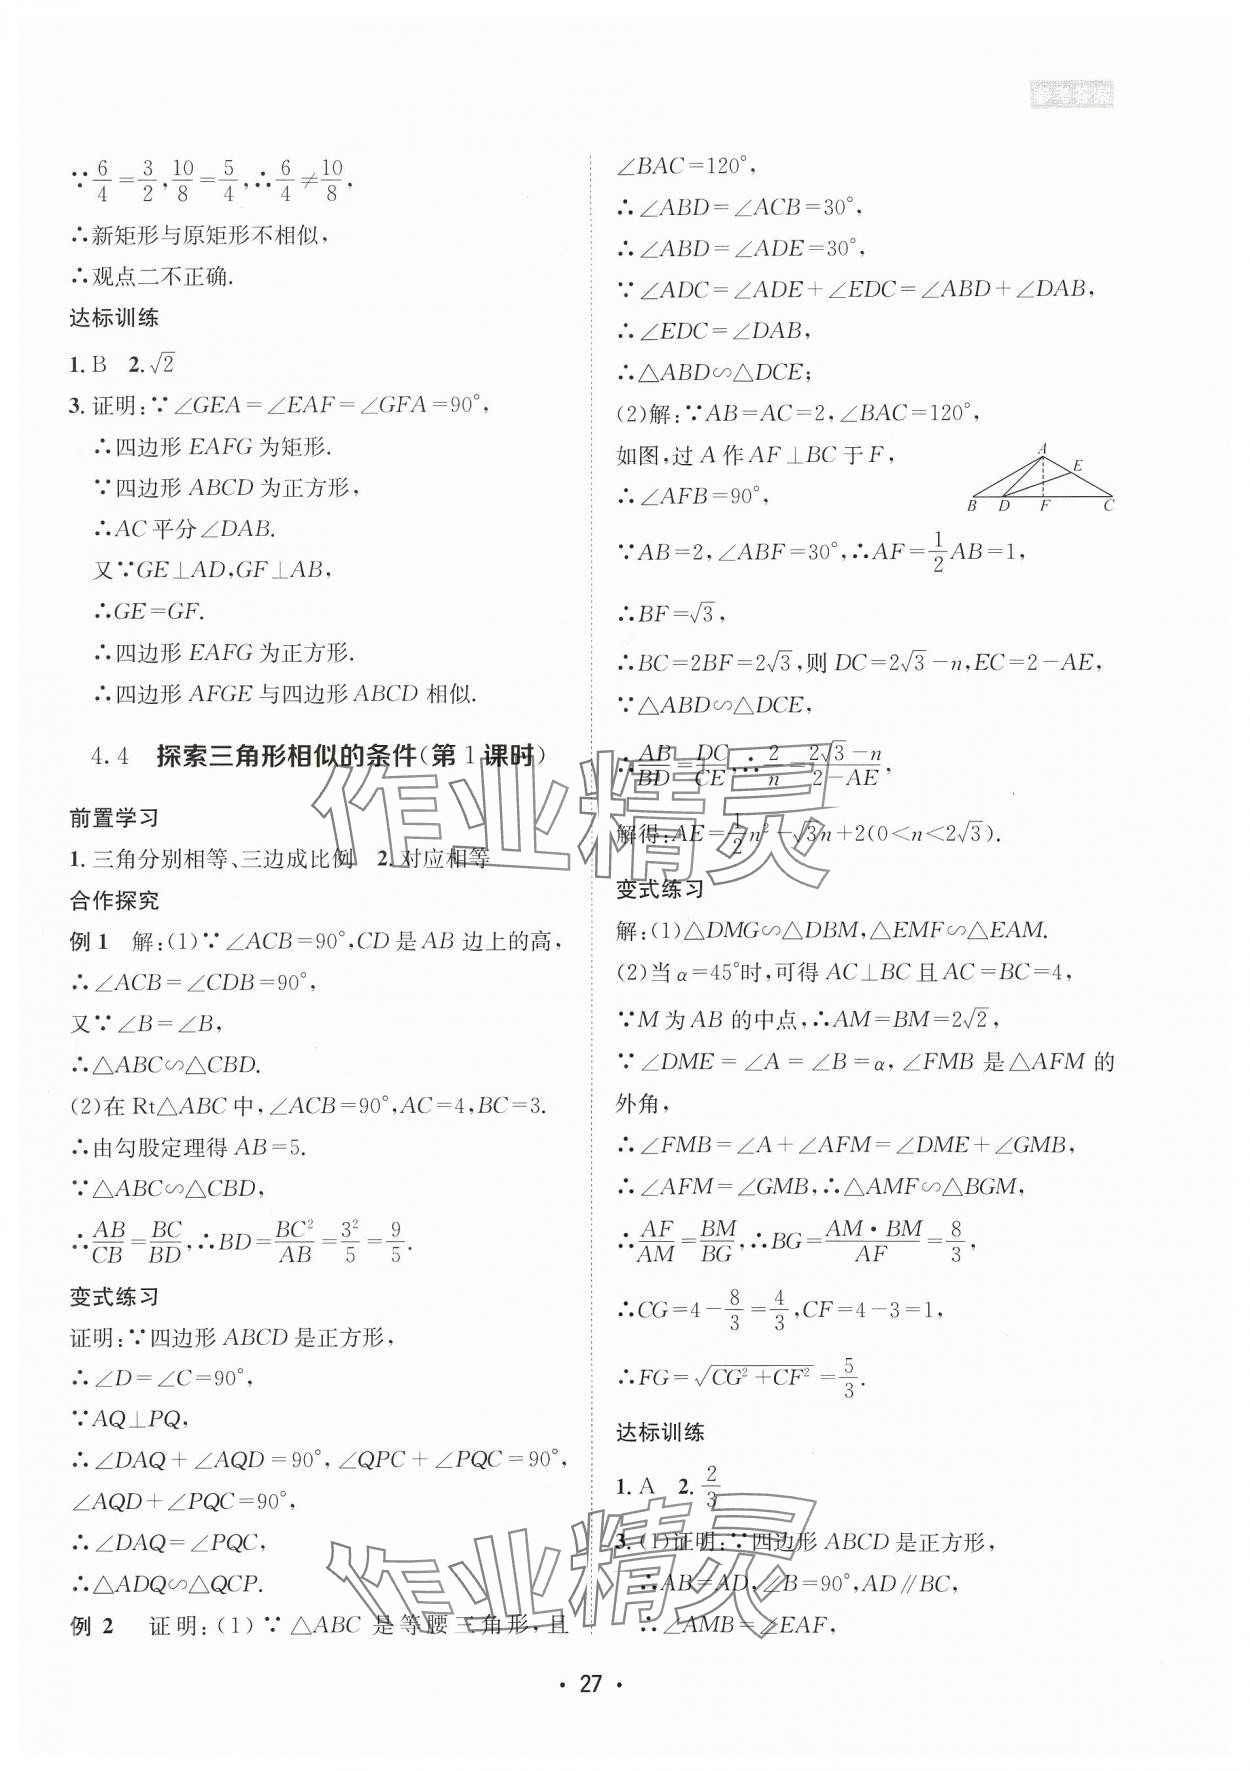 参考答案
∵6/4=3/2,10/8=5/4,∴6/4≠10/8,
∴新矩形与原矩形不相似,
∴观点二不正确.
达标训练
1. B 2. √2
3. 证明:∵∠GEA=∠EAF=∠GFA=90°,
∴四边形 EAFG 为矩形.
∵四边形 ABCD 为正方形,
∴AC 平分∠DAB.
又∵GE⊥AD,GF⊥AB,
∴GE=GF.
∴四边形 EAFG 为正方形.
∴四边形 AFGE 与四边形 ABCD 相似.
4.4 探索三角形相似的条件(第 1 课时)
前置学习
1. 三角分别相等、三边成比例 2. 对应相等
合作探究
例 1 解:(1)∵∠ACB=90°,CD 是 AB 边上的高,
∴∠ACB=∠CDB=90°,
又∵∠B=∠B,
∴△ABC∽△CBD.
(2)在 Rt△ABC 中,∠ACB=90°,AC=4,BC=3.
∴由勾股定理得 AB=5.
∵△ABC∽△CBD,
∴AB/CB=BC/BD,∴BD=BC²/AB=3²/5=9/5.
变式练习
证明:∵四边形 ABCD 是正方形,
∴∠D=∠C=90°,
∵AQ⊥PQ,
∴∠DAQ+∠AQD=90°,∠QPC+∠PQC=90°,
∠AQD+∠PQC=90°,
∴∠DAQ=∠PQC,
∴△ADQ∽△QCP.
例 2 证明:(1)∵△ABC 是等腰三角形,且
∠BAC=120°,
∴∠ABD=∠ACB=30°,
∴∠ABD=∠ADE=30°,
∵∠ADC=∠ADE+∠EDC=∠ABD+∠DAB,
∴∠EDC=∠DAB,
∴△ABD∽△DCE;
(2)解:∵AB=AC=2,∠BAC=120°,
如图,过 A 作 AF⊥BC 于 F,
∴∠AFB=90°,
A
E
B D F C
∵AB=2,∠ABF=30°,∴AF=1/2AB=1,
∴BF=√3,
∴BC=2BF=2√3,则 DC=2√3-n,EC=2-AE,
∵△ABD∽△DCE,
∴AB/BD=DC/CE,∴2/n=(2√3-n)/(2-AE),
解得:AE=1/2n²-√3n+2(0<n<2√3).
变式练习
解:(1)△DMG∽△DBM,△EMF∽△EAM.
(2)当 α=45°时,可得 AC⊥BC 且 AC=BC=4,
∵M 为 AB 的中点,∴AM=BM=2√2,
∵∠DME=∠A=∠B=α,∠FMB 是△AFM 的
外角,
∴∠FMB=∠A+∠AFM=∠DME+∠GMB,
∴∠AFM=∠GMB,∴△AMF∽△BGM,
∴AF/AM=BM/BG,∴BG=AM·BM/AF=8/3,
∴CG=4-8/3=4/3,CF=4-3=1,
∴FG=√(CG²+CF²)=5/3.
达标训练
1. A 2. 2/3
3. (1)证明:∵四边形 ABCD 是正方形,
∴AB=AD,∠B=90°,AD∥BC,
∴∠AMB=∠EAF,
作业精灵
作业精灵
· 27 ·